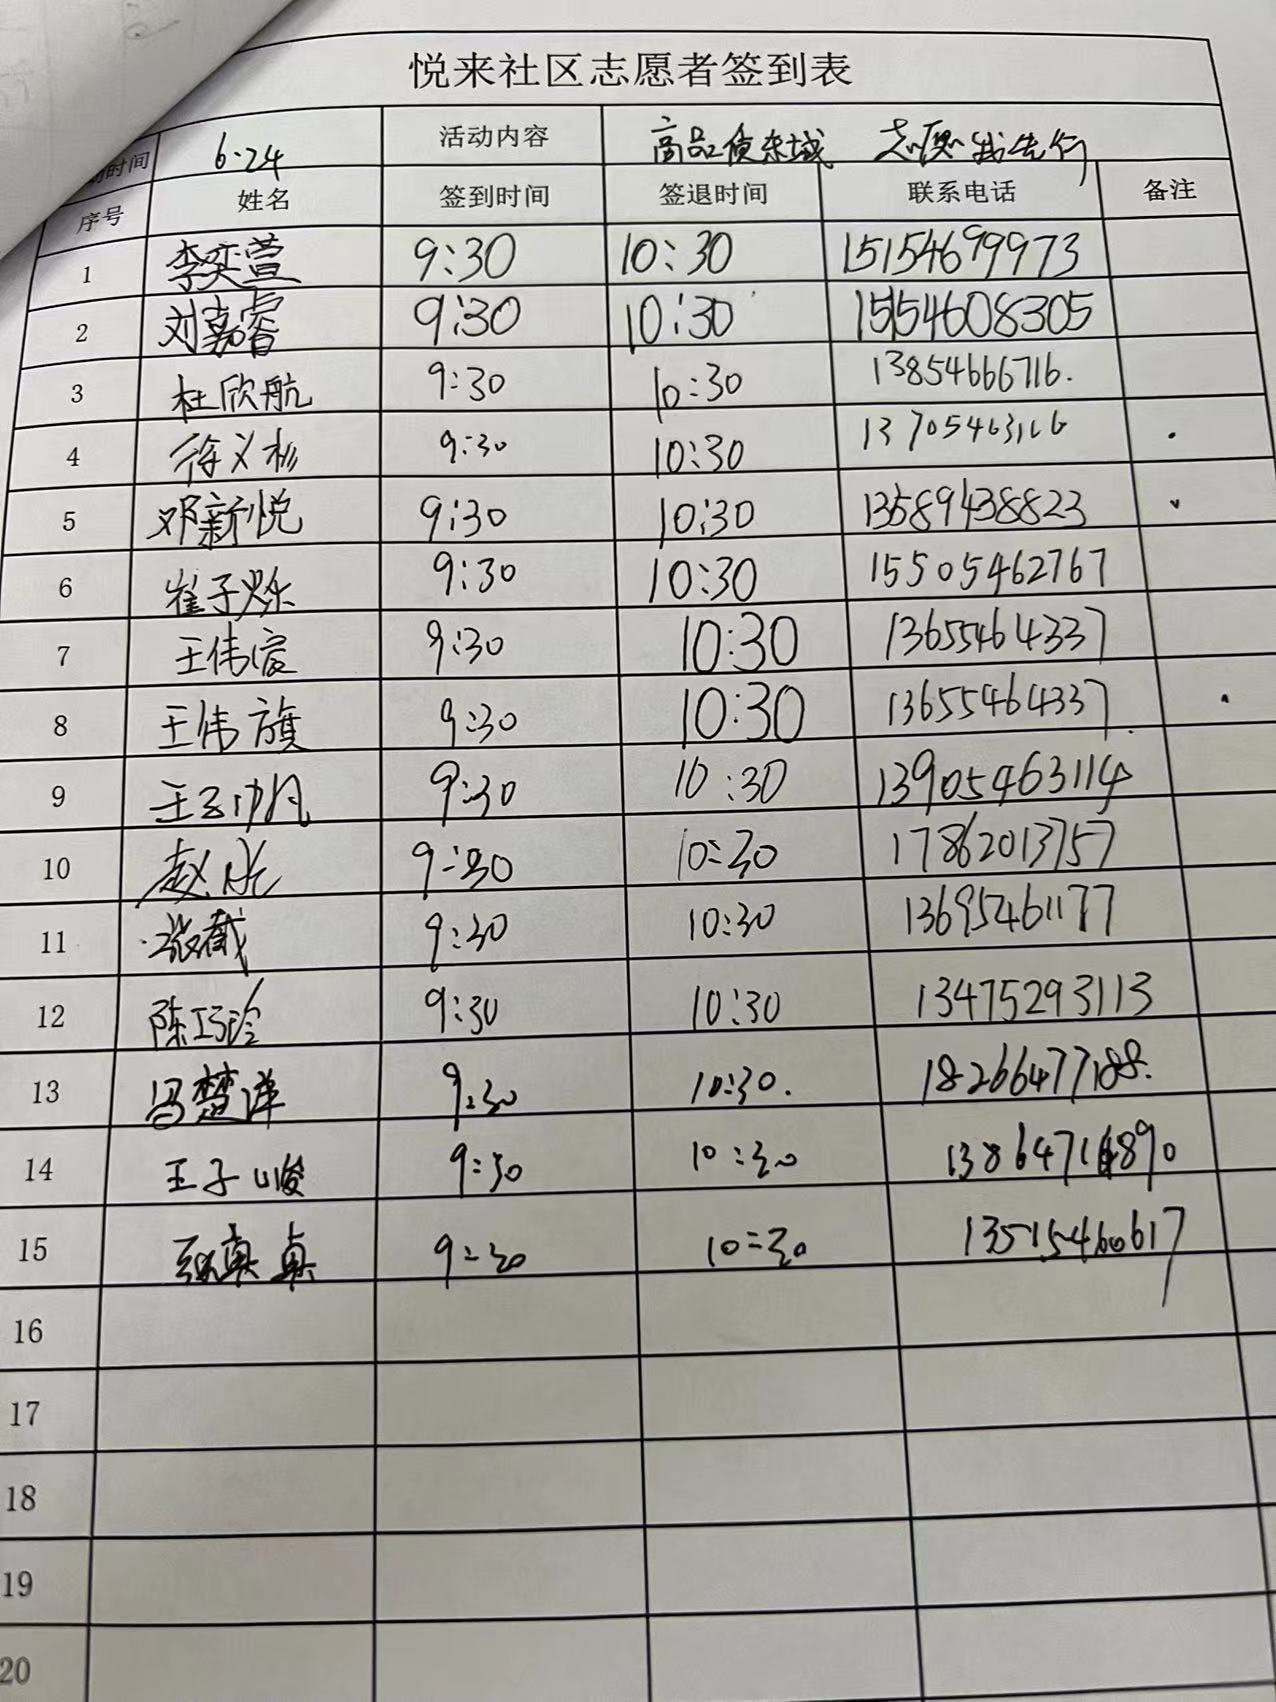 悦来社区志愿者签到表
动时间 6.24 活动内容 高品质东城 志愿我先行
序号 姓名 签到时间 签退时间 联系电话 备注
1 李奕萱 9:30 10:30 15154699973
2 刘嘉睿 9:30 10:30 15154608305
3 杜欣航 9:30 10:30 13854666716.
4 徐义彬 9:30 10:30 13705463166
5 邓新悦 9:30 10:30 13589438823
6 崔子烁 9:30 10:30 15505462767
7 王伟宸 9:30 10:30 13655464337
8 王伟旗 9:30 10:30 13655464337
9 王 帆 9:30 10:30 13905463114
10 赵 9:30 10:30 17862013757
11 张 9:30 10:30 13695461177
12 陈巧玲 9:30 10:30 13475293113
13 冯楚洋 9:30 10:30. 18266477188.
14 王子峻 9:30 10:30
15 真真 9:30 10:30 13515460617
16
17
18
19
20